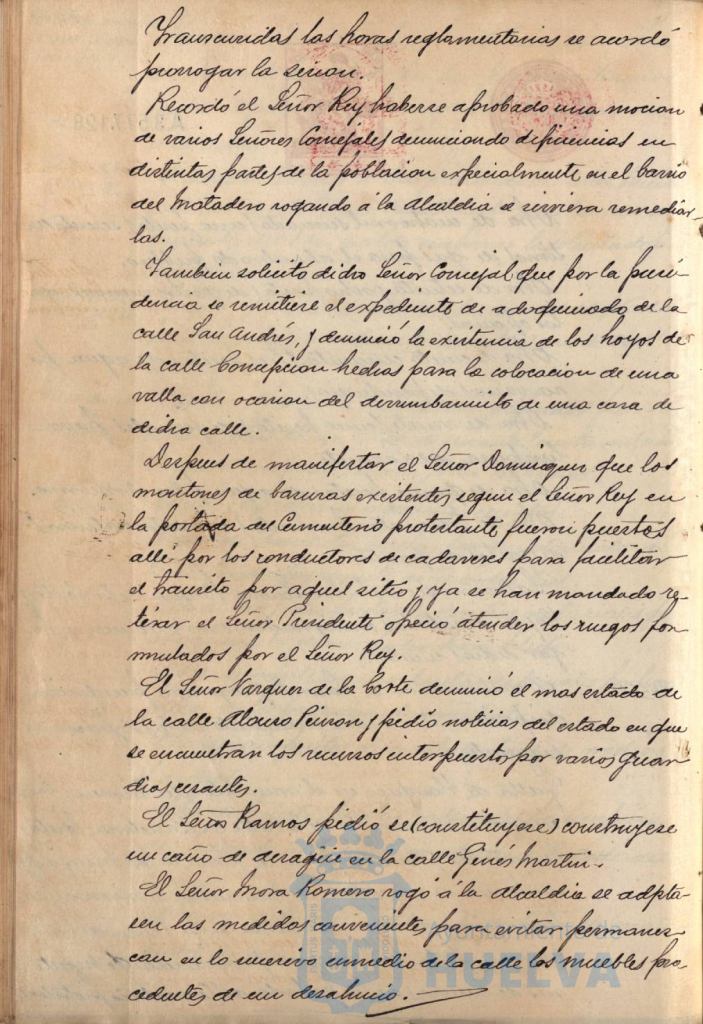 Transcurridas las horas reglamentarias se acordó
prorrogar la sesion.
Recordó el Señor Rey haberse aprobado una mocion
de varios Señores Concejales denunciando deficiencias en
distintas partes de la poblacion especialmente en el barrio
del Matadero rogando á la Alcaldia se sirviera remediar-
las.
Tambien solicitó dicho Señor Concejal que por la presi-
dencia se remitiese el expediente de adoquinado de la
calle San Andrés, y denunció la existencia de los hoyos de
la calle Concepcion hechos para la colocacion de una
valla con ocasion del derrumbamiento de una casa de
dicha calle.
Despues de manifestar el Señor Dominguez que los
montones de basuras existentes segun el Señor Rey en
la portada del Cementerio protestante fueron puestos
alli por los conductores de cadaveres para facilitar
el transito por aquel sitio y ya se han mandado re-
tirar el Señor Presidente ofreció atender los ruegos for-
mulados por el Señor Rey.
El Señor Vazquez de la Corte denunció el mas estado de
la calle Alonso Pinzon y pidio noticias del estado en que
se encuentran los recursos interpuestos por varios guar-
dias cesantes.
El Señor Ramos pidió se (constituyese) construyese
un caño de desagüe en la calle Ginés Martin.
El Señor Mora Romero rogó á la Alcaldia se adpta-
sen las medidas convenientes para evitar permanez-
can en lo sucesivo enmedio de la calle los muebles pro-
cedentes de un desahucio.
Ayuntamiento de
HUELVA